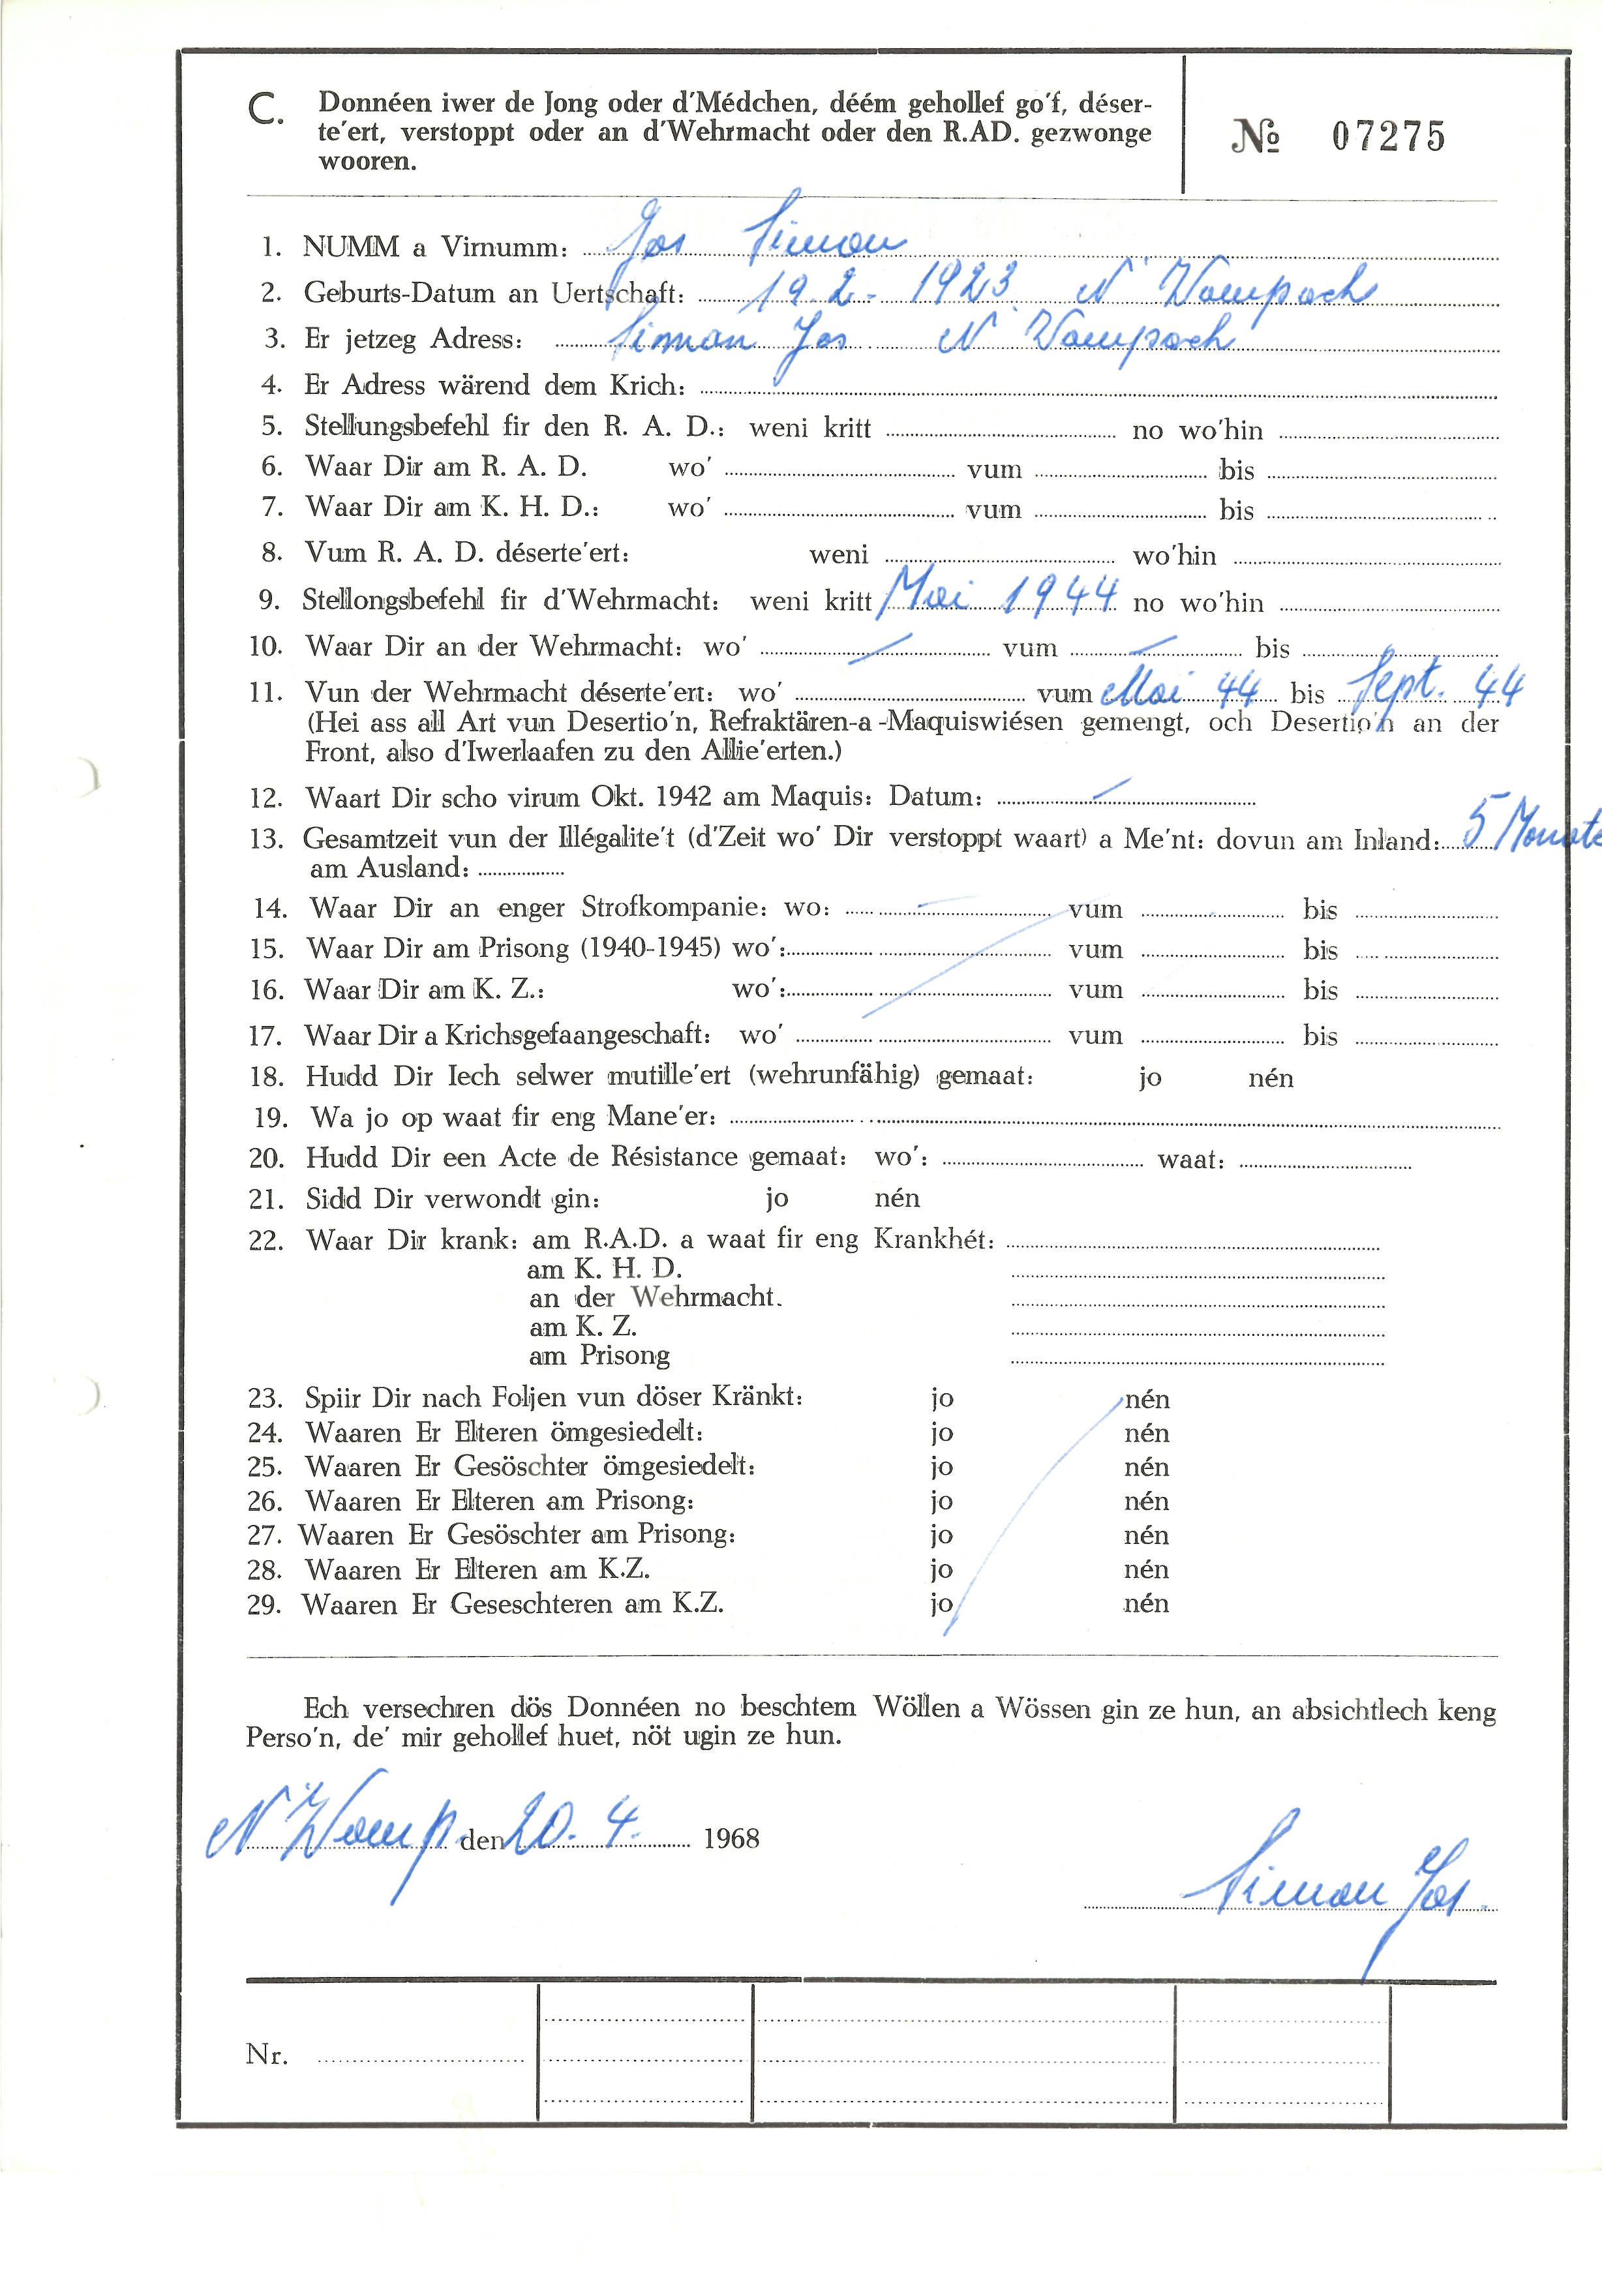 C. Donnéen iwer de Jong oder d'Médchen, déém gehollef go'f, déser-
te'ert, verstoppt oder an d'Wehrmacht oder den R.AD. gezwonge
wooren.
№ 07275
1. NUMM a Virnumm: Jos Simon
2. Geburts-Datum an Uertschaft: 19.2.-1923 N' Wampach
3. Er jetzeg Adress: Simon Jos N' Wampach
4. Er Adress wärend dem Krich:
5. Stellungsbefehl fir den R. A. D.: weni kritt no wo'hin
6. Waar Dir am R. A. D. wo' vum bis
7. Waar Dir am K. H. D.: wo' vum bis
8. Vum R. A. D. déserte'ert: weni wo'hin
9. Stellongsbefehl fir d'Wehrmacht: weni kritt Mai 1944 no wo'hin
10. Waar Dir an der Wehrmacht: wo' / vum / bis
11. Vun der Wehrmacht déserte'ert: wo' vum Mai 44 bis Sept. 44
(Hei ass all Art vun Desertio'n, Refraktären-a-Maquiswiésen gemengt, och Desertio'n an der
Front, also d'Iwerlaafen zu den Allie'erten.)
12. Waart Dir scho virum Okt. 1942 am Maquis: Datum: /
13. Gesamtzeit vun der Illégalite't (d'Zeit wo' Dir verstoppt waart) a Me'nt: dovun am Inland: 5 Monate
am Ausland:
14. Waar Dir an enger Strofkompanie: wo: vum bis
15. Waar Dir am Prisong (1940-1945) wo': vum bis
16. Waar Dir am K. Z.: wo': vum bis
17. Waar Dir a Krichsgefaangeschaft: wo' vum bis
18. Hudd Dir Iech selwer mutille'ert (wehrunfähig) gemaat: jo nén
19. Wa jo op waat fir eng Mane'er:
20. Hudd Dir een Acte de Résistance gemaat: wo': waat:
21. Sidd Dir verwondt gin: jo nén
22. Waar Dir krank: am R.A.D. a waat fir eng Krankhét:
am K. H. D.
an der Wehrmacht.
am K. Z.
am Prisong
23. Spiir Dir nach Foljen vun döser Kränkt: jo nén
24. Waaren Er Elteren ömgesiedelt: jo nén
25. Waaren Er Gesöschter ömgesiedelt: jo nén
26. Waaren Er Elteren am Prisong: jo nén
27. Waaren Er Gesöschter am Prisong: jo nén
28. Waaren Er Elteren am K.Z. jo nén
29. Waaren Er Geseschteren am K.Z. jo nén
Ech versechren dös Donnéen no beschtem Wöllen a Wössen gin ze hun, an absichtlech keng
Perso'n, de' mir gehollef huet, nöt ugin ze hun.
N' Wamp. den 20. 4. 1968
Simon Jos.
Nr.